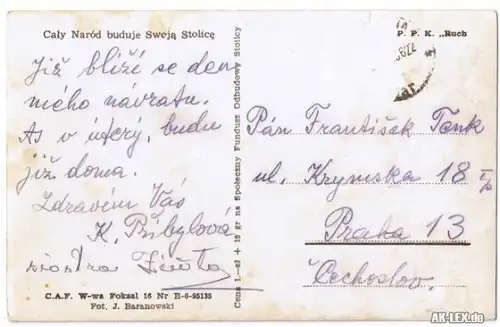 Cały Naród buduje Swoją Stolicę
Již blíží se den
mého návratu.
As v úterý, budu
již doma.
Zdravím Vás
K. Přibylová
C.A.F. W-wa Foksal 16 Nr E-6-95135
Fot. J. Baranowski
Cena 1.-zł + 10 gr na Społeczny Fundusz Odbudowy Stolicy
P. P. K. „Ruch
Pán František Tenk
ul. Krymska 18
Praha 13
Čechoslov.
AK-LEX.de